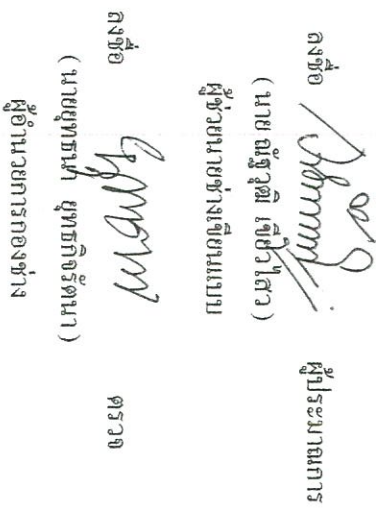 ลงชื่อ ผู้ประมาณการ
( นายณัฐวุฒิ เขียวไสว )
ผู้ช่วยนายช่างเขียนแบบ
ลงชื่อ ตรวจ
( นายยุทธนา ยุทธกิจรัตนา )
ผู้อำนวยการกองช่าง